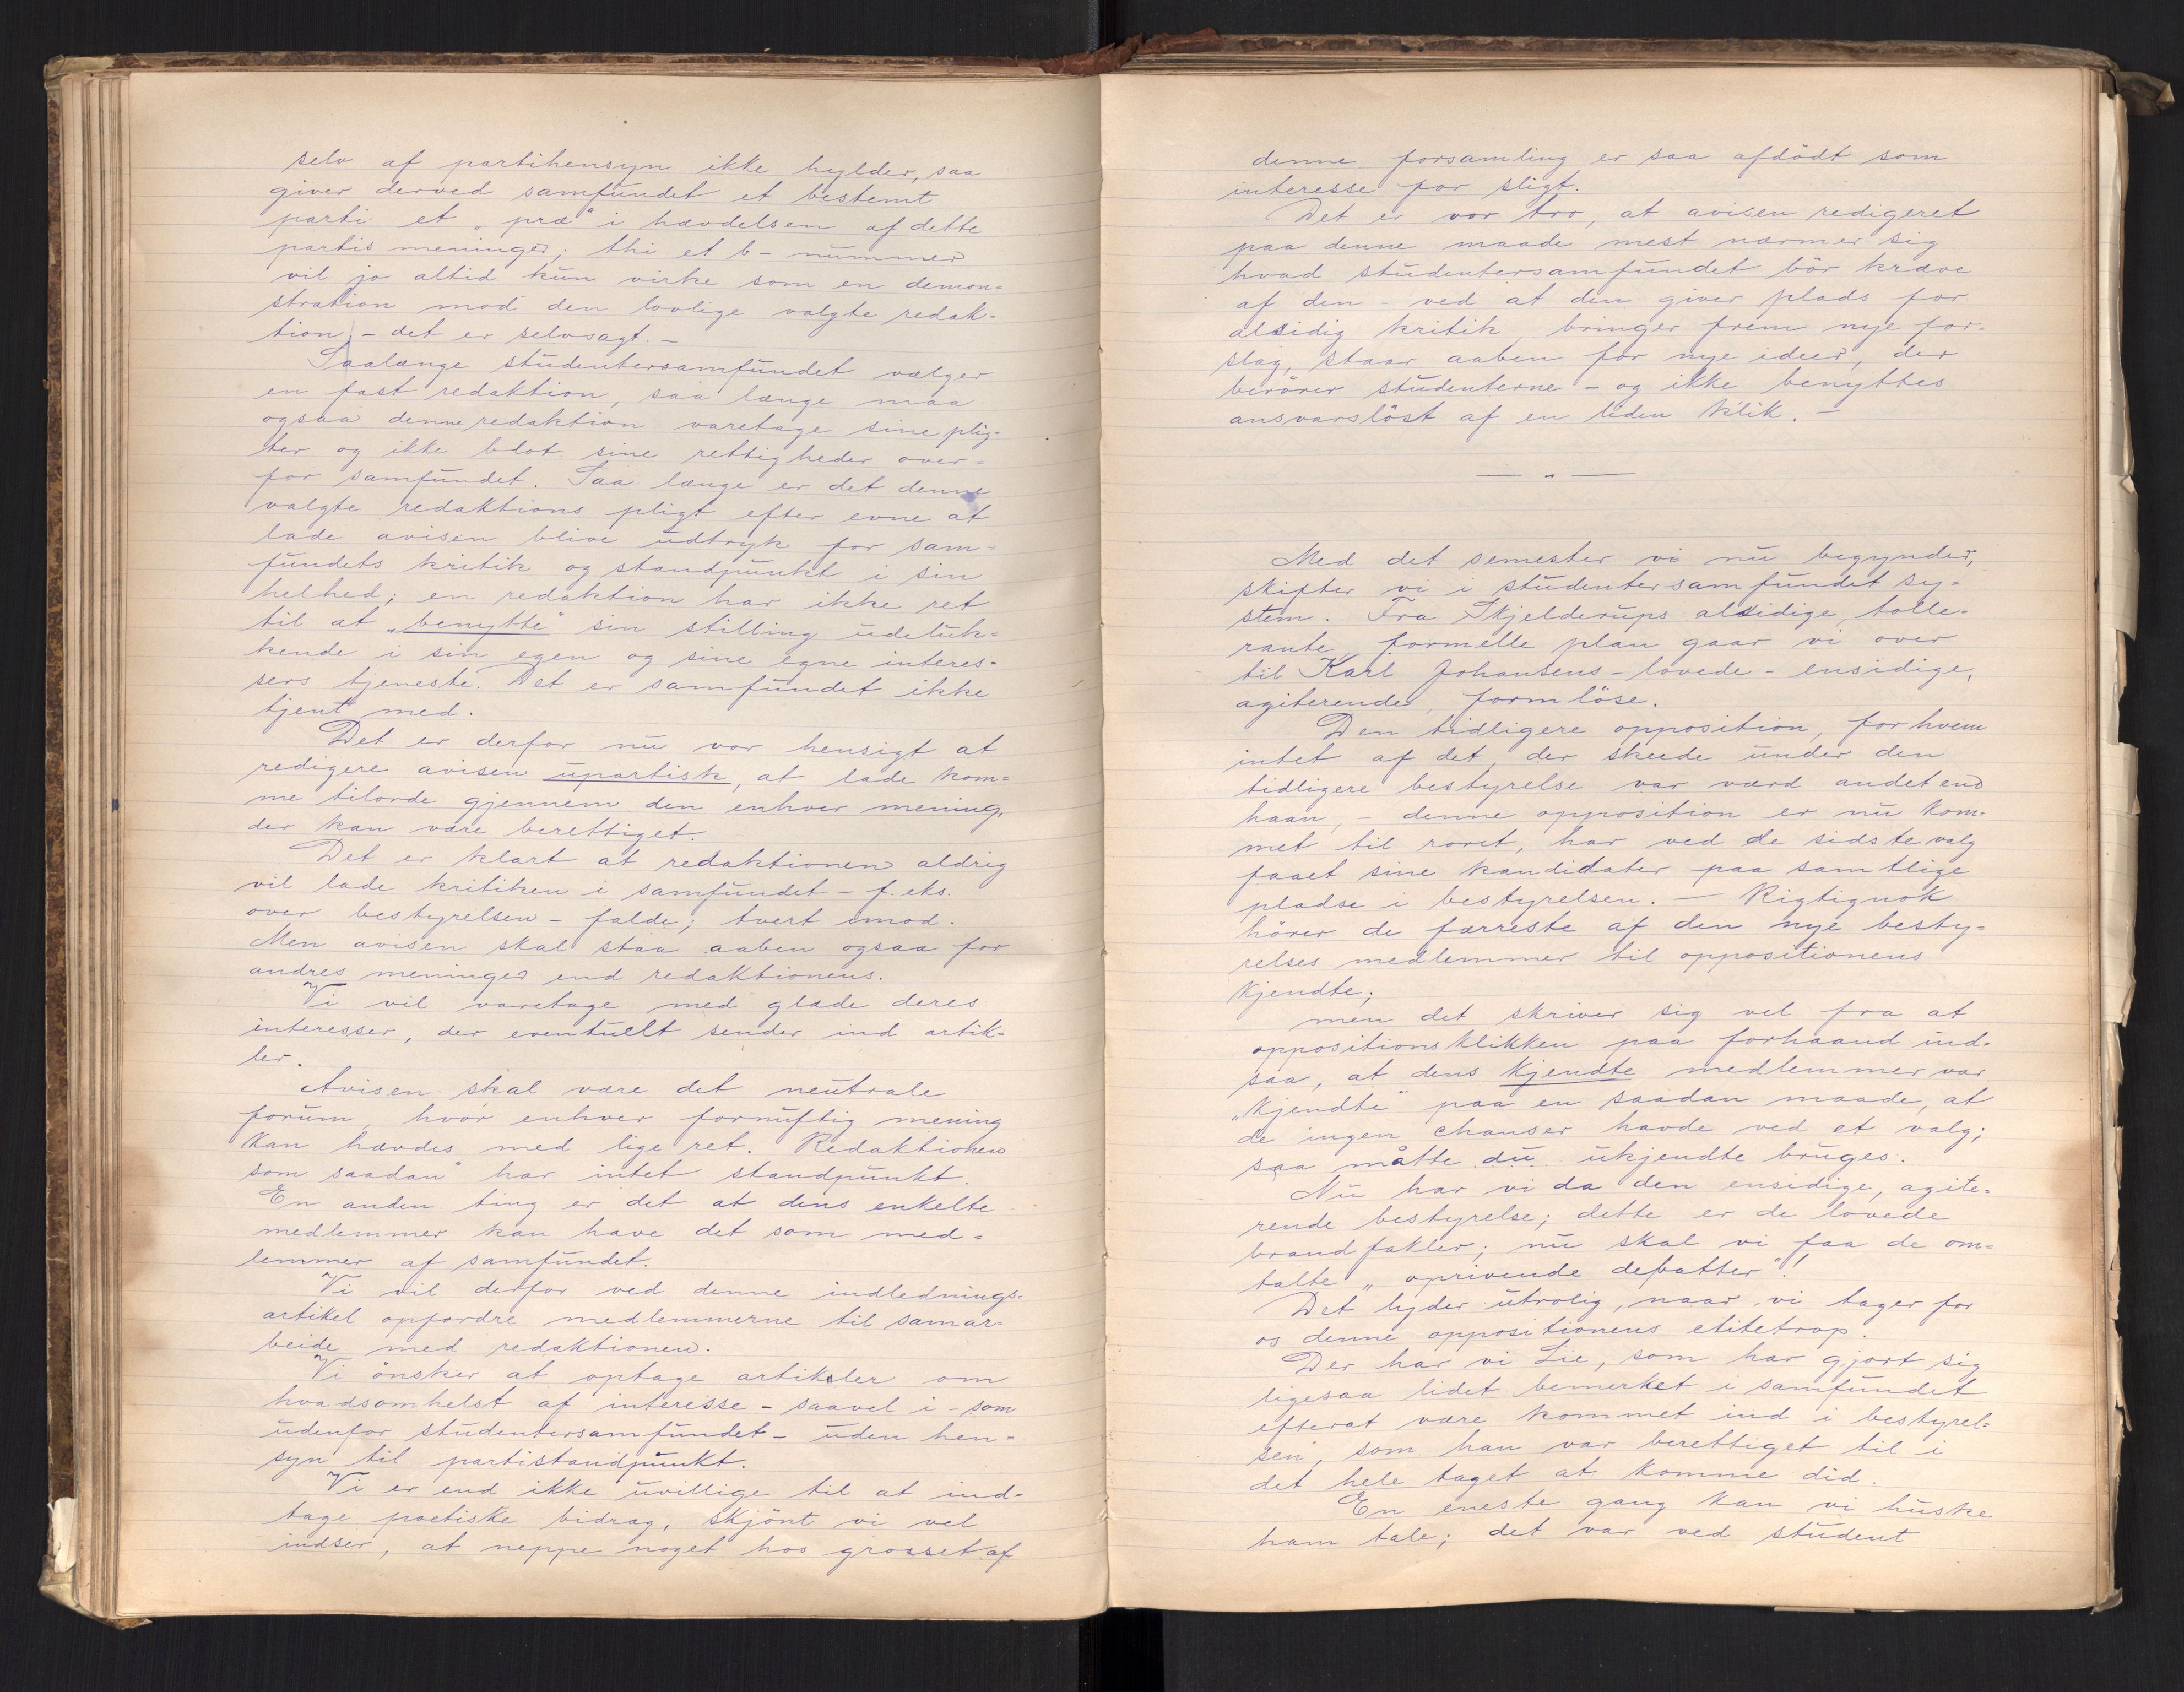 selv af partihensyn ikke hylder, saa
giver derved samfundet et bestemt
parti et „præ" i hævdelsen af dette
partis meninger; thi et b- nummer
vil jo altid kun virke som en demon=
stration mod den lovlige valgte redak=
tion, - det er selvsagt. -
Saalænge studentersamfundet vælger
en fast redaktion, saa længe maa
ogsaa denne redaktion varetage sine plig=
ter og ikke blot sine rettigheder over=
for samfundet. Saa længe er det denne
valgte redaktions pligt efter evne at
lade avisen blive udtryk for sam=
fundets kritik og standpunkt i sin
helhed; en redaktion har ikke ret
til at „benytte" sin stilling udeluk=
kende i sin egen og sine egne interes=
sers tjeneste. Det er samfundet ikke
tjent med.
Det er derfor nu vor hensigt at
redigere avisen upartisk, at lade kom=
me tilorde gjennem den enhver mening,
der kan være berettiget.
Det er klart at redaktionen aldrig
vil lade kritiken i samfundet - f. eks.
over bestyrelsen - falde; tvert imod.
Men avisen skal staa aaben ogsaa for
andres meninger end redaktionens.
Vi vil varetage med glæde deres
interesser, der eventuellt sender ind artik=
ler.
Avisen skal være det neutrale
forum, hvor enhver fornuftig mening
kan hævdes med lige ret. Redaktionen
som saadan" har intet standpunkt.
En anden ting er det at dens enkelte
medlemmer kan have det som med=
lemmer af samfundet.
Vi vil derfor ved denne indlednings=
artikel opfordre medlemmerne til samar=
beide med redaktionen.
Vi önsker at optage artikler om
hvadsomhelst af interesse - saavel i - som
udenfor studentersamfundet - uden hen=
syn til partistandpunkt.
Vi er end ikke uvillige til at ind=
tage poetiske bidrag, skjönt vi vel
indser, at neppe noget hos grosset af
denne forsamling er saa afdödt som
interesse for sligt.
Det er vor tro, at avisen redigeret
paa denne maade mest nærmer sig
hvad studentersamfundet bör kræve
af den - ved at den giver plads for
alsidig kritik, bringer frem nye for=
slag, staar aaben for nye ideer, der
berörer studenterne - og ikke benyttes
ansvarslöst af en liden klik. -
Med det semester vi nu begynder,
skifter vi i studentersamfundet sy=
stem. Fra Skjelderups alsidige, tolle=
rante, formelle plan gaar vi over
til Karl Johansens - lovede - ensidige,
agiterende, formlöse.
Den tidligere opposition, for hvem
intet af det, der skeede under den
tidligere bestyrelse var værd andet end
haan, - denne opposition er nu kom=
met til roret, har ved de sidste valg
faaet sine kandidater paa samtlige
pladse i bestyrelsen. - Rigtignok
hörer de færreste af den nye besty=
relses medlemmer til oppositionens
kjendte;
men det skriver sig vel fra at
oppositionsklikken paa forhaand ind=
saa, at dens kjendte medlemmer var
„kjendte" paa en saadan maade, at
de ingen chanser havde ved et valg;
saa måtte du ukjendte bruges.
Nu har vi da den ensidige, agite=
rende bestyrelse; dette er de lovede
brandfakler; nu skal vi faa de om=
talte „oprivende debatter"!
Det lyder utrolig, naar vi tager for
os denne oppositionens elitetrop.
Der har vi Lie, som har gjort sig
ligesaa lidet bemerket i samfundet
efterat være kommet ind i bestyrel=
sen, som han var berettiget til i
det hele taget at komme did.
En eneste gang kan vi huske
ham tale; det var ved student